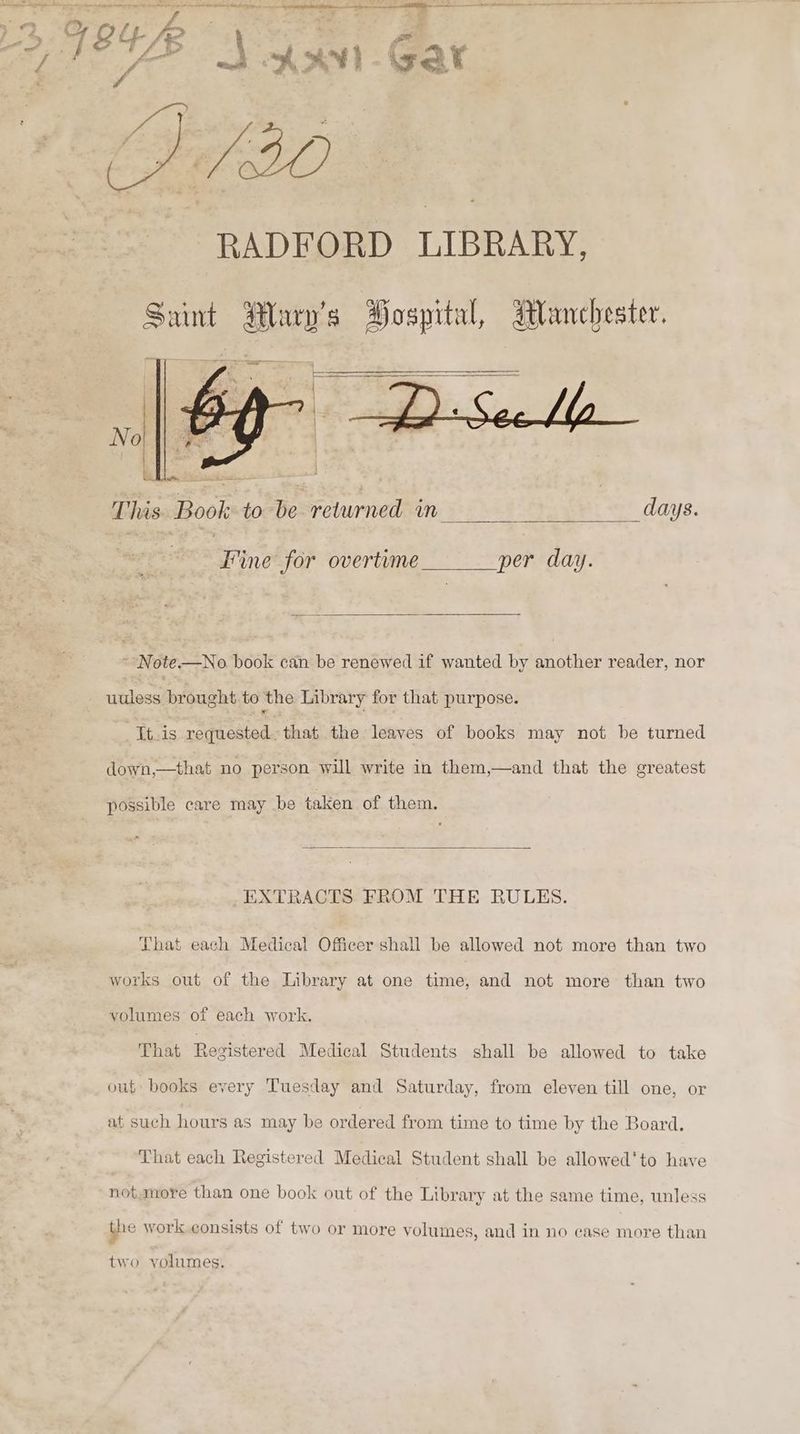 23,984/B J xxvi. Gar
J./30
RADFORD LIBRARY,
Saint Mary's Hospital, Manchester.
No 69 D. Sec
This Book to be returned in ______ days.
Fine for overtime ______ per day.
Note.—No book can be renewed if wanted by another reader, nor
uuless brought to the Library for that purpose.
It is requested that the leaves of books may not be turned
down,—that no person will write in them,—and that the greatest
possible care may be taken of them.
EXTRACTS FROM THE RULES.
That each Medical Officer shall be allowed not more than two
works out of the Library at one time, and not more than two
volumes of each work.
That Registered Medical Students shall be allowed to take
out books every Tuesday and Saturday, from eleven till one, or
at such hours as may be ordered from time to time by the Board.
That each Registered Medical Student shall be allowed to have
not more than one book out of the Library at the same time, unless
the work consists of two or more volumes, and in no case more than
two volumes.